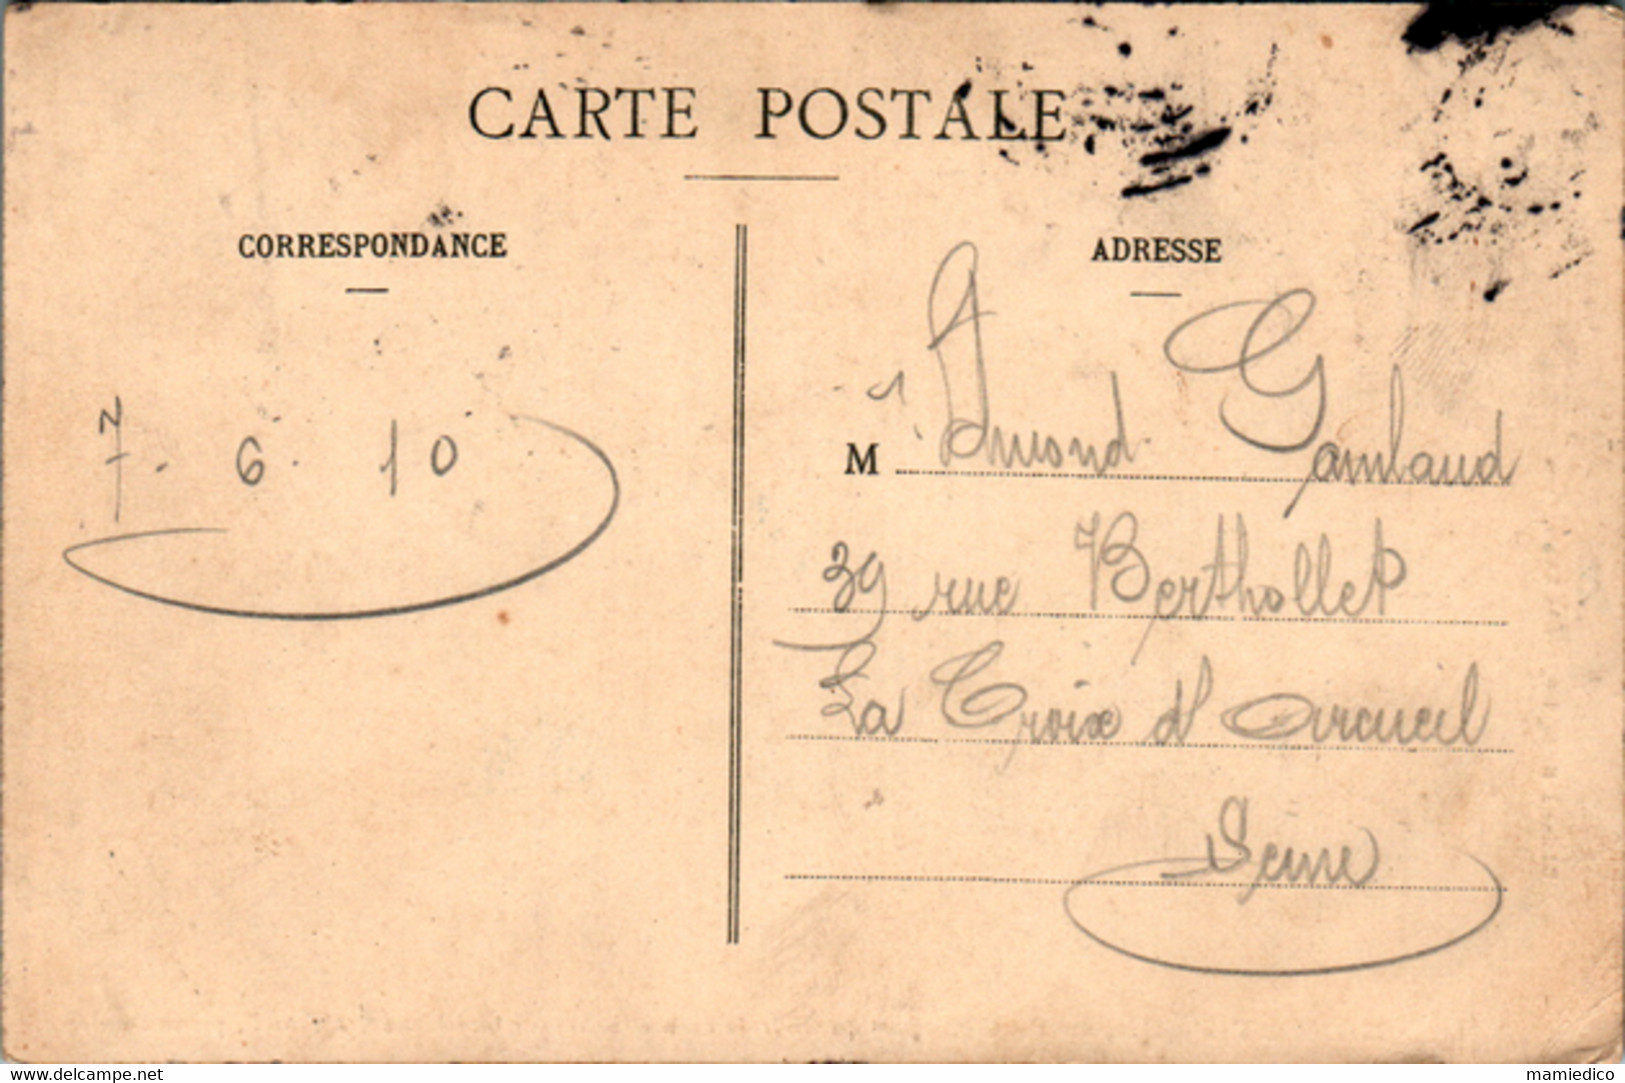 CARTE POSTALE
CORRESPONDANCE
ADRESSE
7. 6. 10
M
39 rue Berthollet
La Croix d'Arcueil
Seine
www.delcampe.net
mamiedico